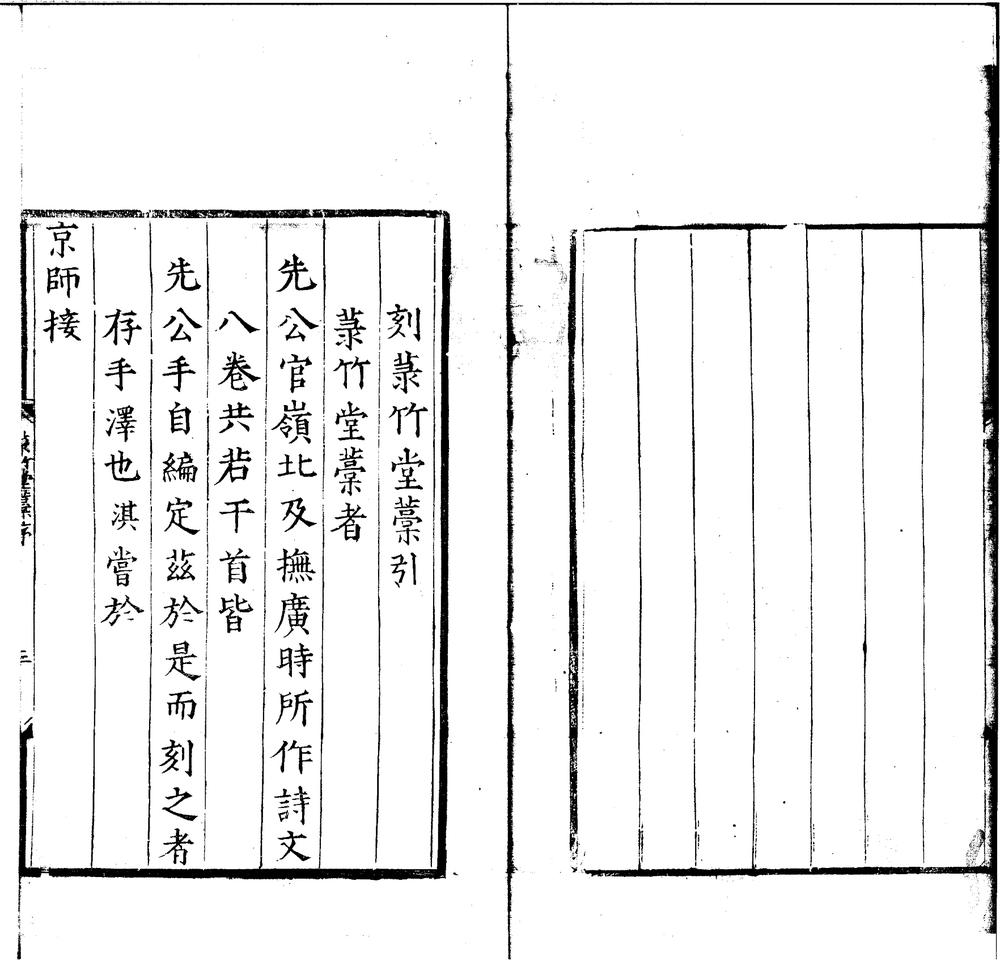 刻菉竹堂藳引
菉竹堂藳者
先公官嶺北及撫廣時所作詩文
八卷共若干首皆
先公手自編定茲於是而刻之者
存手澤也淇嘗於
京師接
菉竹堂藳序
二